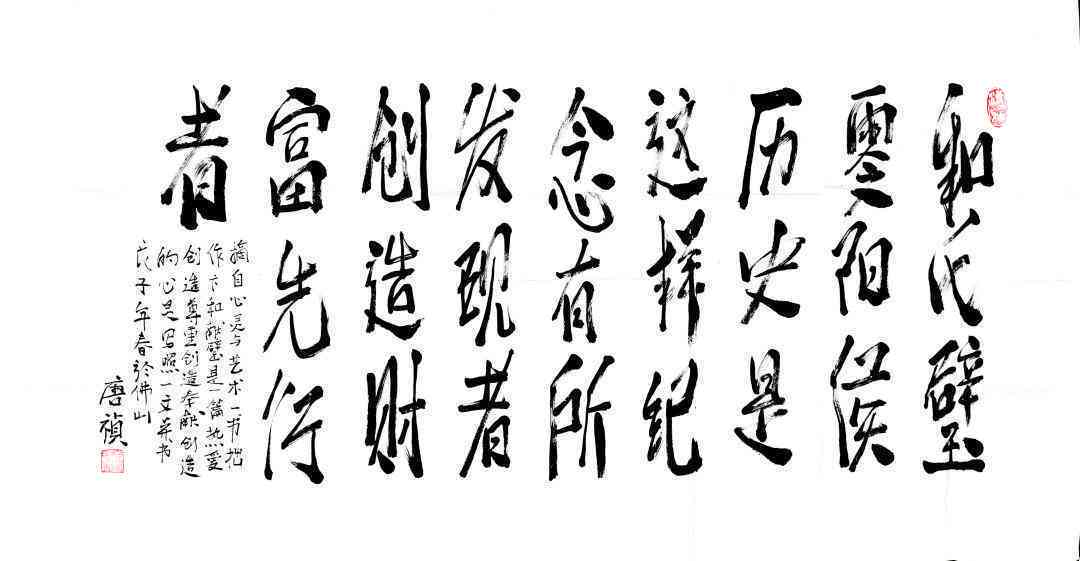 和氏璧
零阳侯
历史是
这样纪
念有所
发现者
创造财
富先行
者
摘自心灵与艺术一书拙
作卞和献璧是一篇热爱
创造尊重创造奉献创造
的心灵写照一文并书
戊子年春於佛山
唐祯